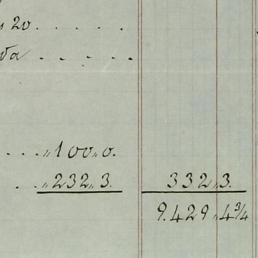 20. . . . .
va . . . . .
. . . „100„0.
. . „232„3. 332„3.
9.429„4¾